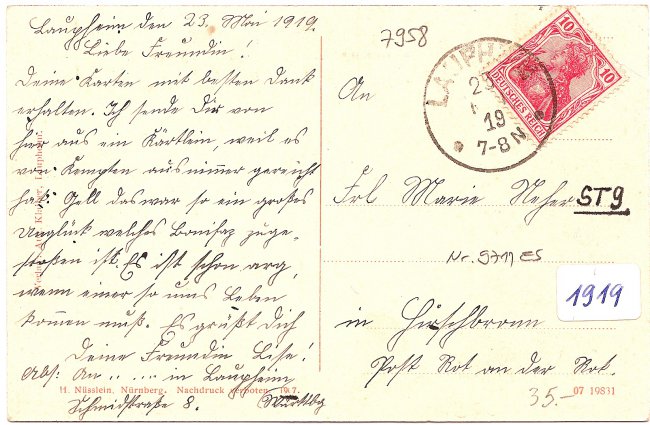 Laupheim den 23. Mai 1919.
Liebe Freundin!
Deine Karten mit besten Dank
erhalten. Ich sende Dir von
hier aus ein Kärtlein, weil es
von Kempten aus nimmer gereicht
hat. Gell das war so ein großes
Unglück welches Bonifaz zuge-
stoßen ist. Es ist schon arg,
wenn einer so ums Leben
kommen muß. Es grüßt Dich
Deine Freundin Lise!
Abs: An . . . . . in Laupheim
Schmidstraße 8. Württbg
7958
LAUPHEIM
23
19
7-8 N
10
10
DEUTSCHES REICH
An
Frl Marie Neher
ST9
Nr. 9711 ES
1919
in
Post Rot an der Rot.
35.-
11. Nüsslein, Nürnberg. Nachdruck verboten. 1917.
07 19831
Laupheim.